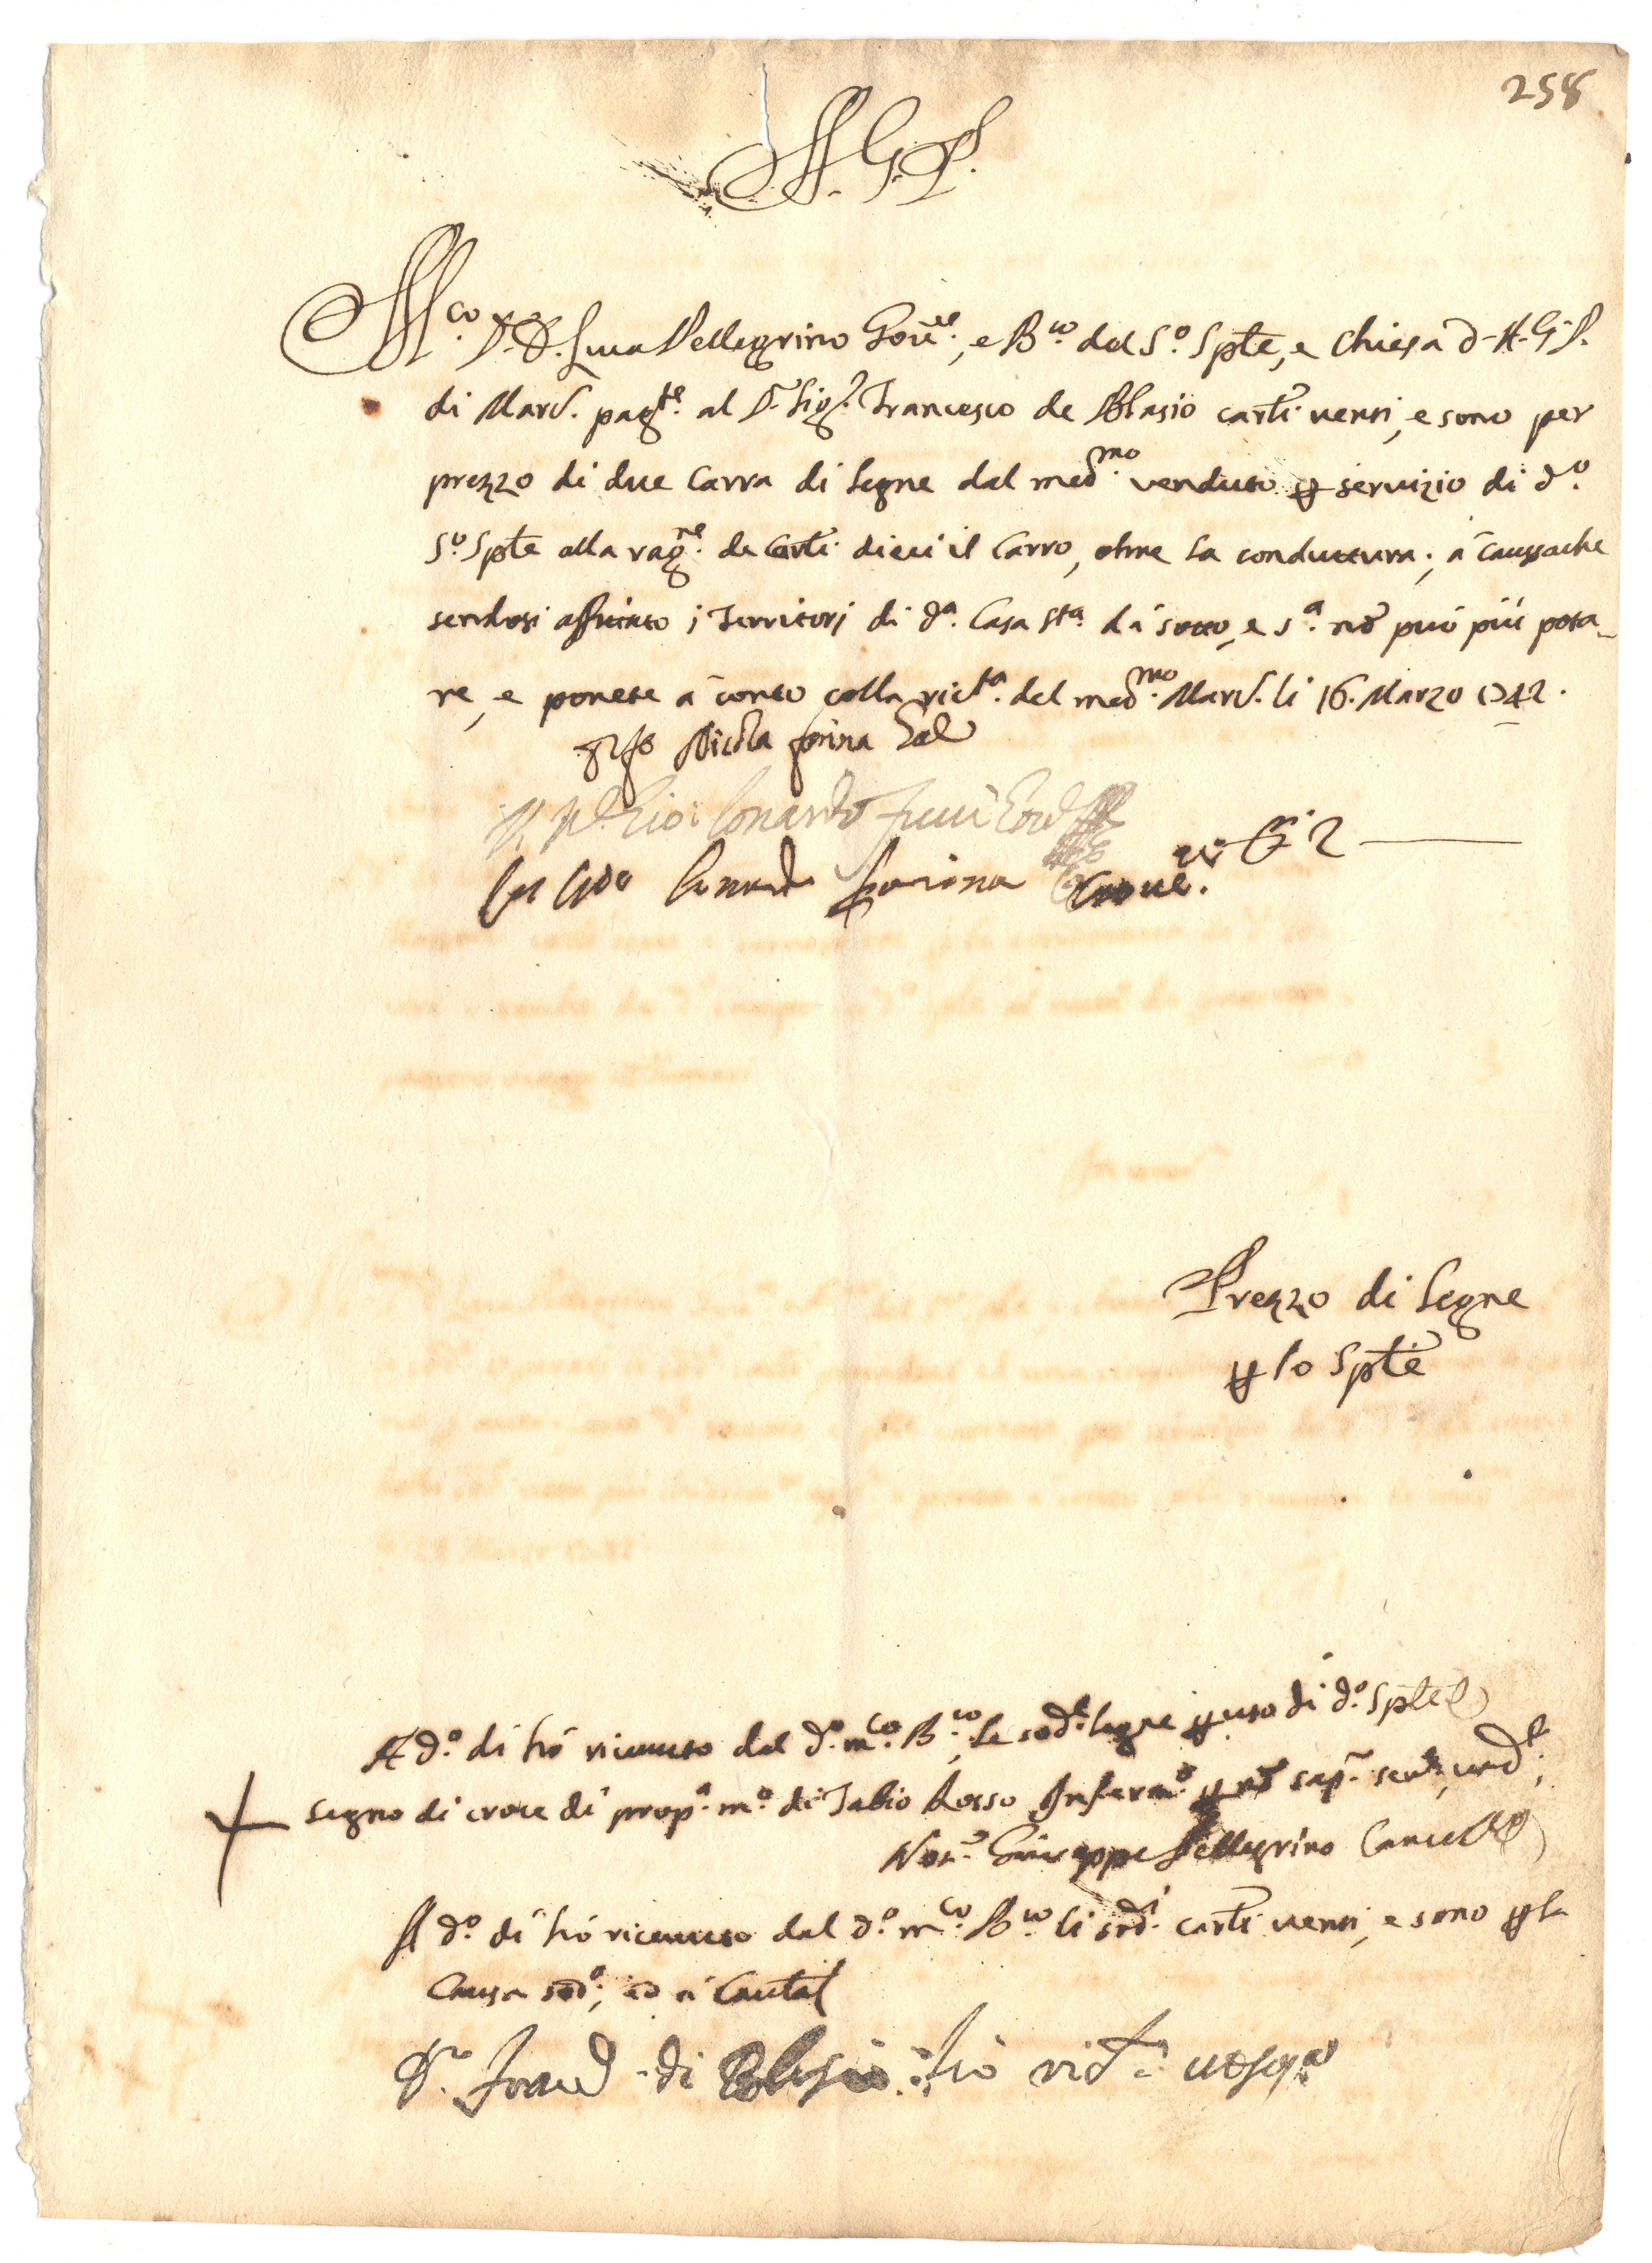 258
A. G. P.
M.co D. D. Luca Pellegrino Gov.re, e B.ro del S.o Spte, e Chiesa d. A. G. P.
di Mard. pag.te al D. Sig.r Francesco de Blasio carti venti, e sono per
prezzo di due Carra di legne dal med.mo venduto p servizio di d.o
S.o Spte alla rag.ne de Carti dieci il Carro, oltre la conduttura; à caussache
sendosi affittato i Territorj di d.a Casa S.ta da sotto, e s.a nō può più pota-
re, e ponete à conto colla ric.ta del med.mo Mard. li 16. Marzo 1742.
Nicola
Lonardo
Lonardo Farina Gove.
2
Prezzo di legne
p lo Spte
A d.o dì hò ricevuto dal d.o m.co B.ro le sod.e legne p uso di d.o Spte
segno di croce di prop.a m.o di Fabio Rosso Inferm.o p nō sap. scri.e
Not. Giuseppe Pellegrino Canc
A d.o dì hò ricevuto dal d.o m.co B.ro li sod.i carti venti, e sono p la
Causa sod.a, ed à Cautal
D. Franc di Blasio hò ric.to ut sop.a